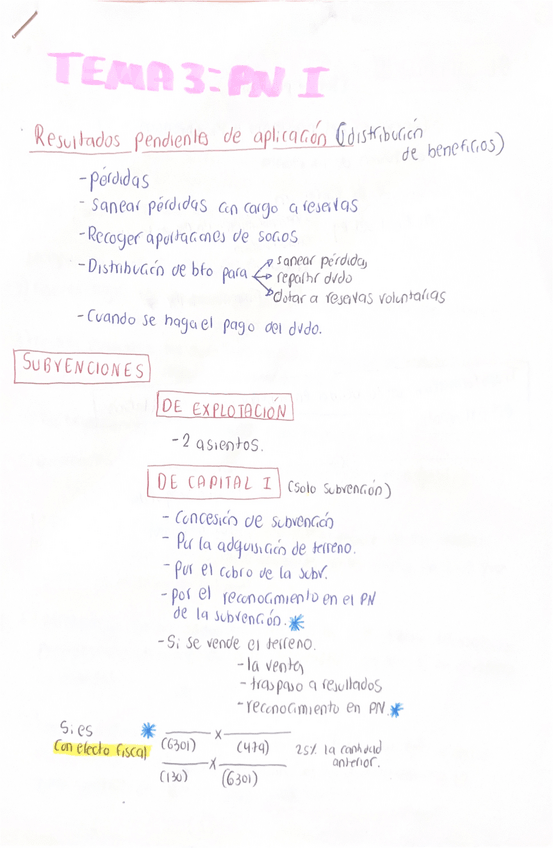 TEMA 3: PN I
Resultados pendientes de aplicación (distribución
de beneficios)
- pérdidas
- sanear pérdidas con cargo a reservas
- Recoger aportaciones de socios
- Distribución de bfo para
sanear pérdidas
repartir dvdo
dotar a reservas voluntarias
- Cuando se haga el pago del dvdo.
SUBVENCIONES
DE EXPLOTACIÓN
- 2 asientos.
DE CAPITAL I (solo subvención)
- Concesión de subvención
- Por la adquisición de terreno.
- por el cobro de la subv.
- por el reconocimiento en el PN
de la subvención. *
- Si se vende el terreno.
- la venta
- traspaso a resultados
- reconocimiento en PN. *
Si es
con efecto fiscal
* (6301) x (479) 25% la cantidad
anterior.
(130) x (6301)